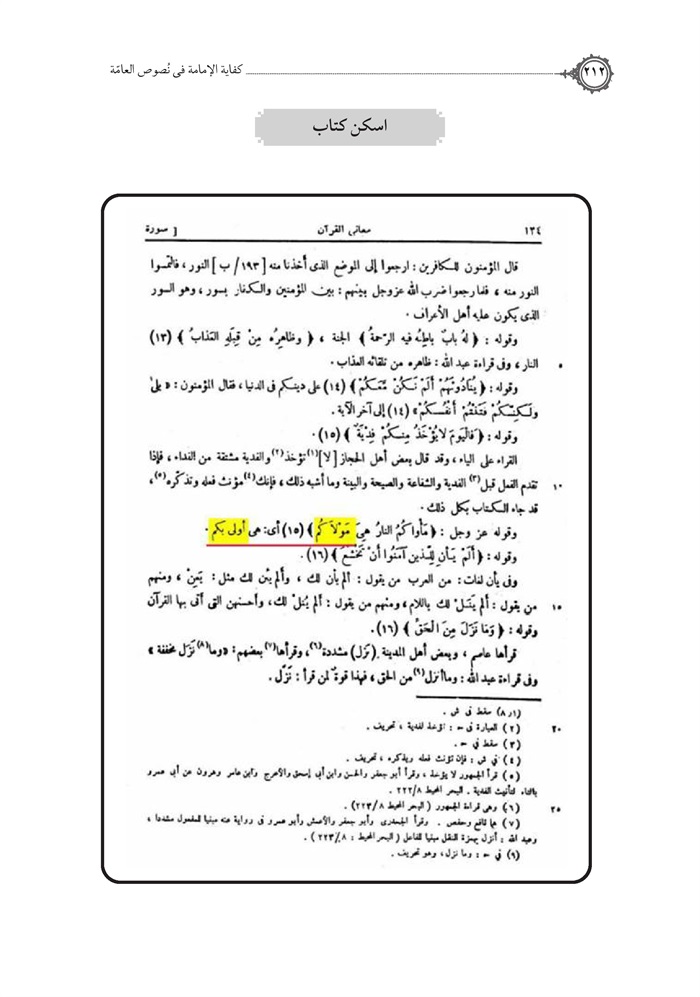 ٢١٢ كفاية الإمامة فى نُصوص العامّة
اسکن کتاب
١٣٤ معانى القرآن [ سورة
قال المؤمنون للكافرين : ارجعوا إلى الموضع الذى أخذنا منه [ ١٩٣/ ب ] النور ، فالتمسوا
النور منه ، فلما رجعوا ضرب الله عز وجل بينهم : بين المؤمنين والكفار بسور ، وهو السور
الذى يكون عليه أهل الأعراف .
وقوله : ﴿ لهُ بابٌ باطِنُه فيه الرّحمةُ ﴾ الجنة ، ﴿ وظاهِرُه مِنْ قِبَلِهِ العَذابُ ﴾ (١٣)
النار ، وفى قراءة عبد الله : ظاهره من تلقائه العذاب . ٥
وقوله : ﴿ يُنَادُونَهُمْ أَلَمْ نَكُنْ مَّعَكُمْ ﴾ (١٤) على دينكم فى الدنيا ، فقال المؤمنون : « بلىٰ
ولَكِنَّكُمْ فَتَنْتُمْ أَنْفُسَكُمْ» (١٤) إلى آخر الآية .
وقوله : ﴿ فَالْيَومَ لَا يُؤْخَذُ مِنكُمْ فِدْيَةٌ ﴾ (١٥) .
القراء على الياء ، وقد قال بعض أهل الحجاز [لا](١) تؤخذ(٢) والفدية مشتقة من الفداء ، فإذا
تقدم الفعل قبل(٣) الفدية والشفاعة والصيحة والبينة وما أشبه ذلك ، فإنك(٤) مؤنث فعله وتذكّره(٥)، ١٠
قد جاء الكتاب بكل ذلك .
وقوله عز وجل : ﴿ مَأواكُمُ النارُ هِىَ مَوْلاَكُم ﴾ (١٥) أى : هى أولى بكم .
وقوله : ﴿ أَلَمْ يَأنِ لِلَّذينَ آمَنُوا أنْ تَخْشَعَ ﴾ (١٦) .
وفى يأن لغات : من العرب من يقول : ألم يأن لك ، وألم يئن لك مثل : يَعِنْ ، ومنهم
من يقول : ألم يَنَلْ لك باللام ، ومنهم من يقول : ألم يُنِلْ لك، وأحسنهن التى أتى بها القرآن ١٥
وقوله : ﴿ وَمَا نَزَلَ مِنَ الْحَقِّ ﴾ (١٦) .
قرأها عاصم ، وبعض أهل المدينة (نَزَل) مشددة(٦)، وقرأها(٧) بعضهم : «وما(٨) نَزَل مخففة »
وفى قراءة عبد الله : وما أنزل(٩) من الحق ، فهذا قوة لمن قرأ : نَزَّل .
(٨،١) سقط فى ش .
(٢) العبارة فى ح : تؤخذ لفدية ، تحريف . ٢٠
(٣) سقط فى ح .
(٤) فى ش : فإن تؤنث فعله ويذكره ، تحريف .
(٥) قرأ الجمهور لا يؤخذ ، وقرأ أبو جعفر والحسن وابن أبى إسحق والأعرج وابن عامر وهرون عن أبى عمرو
بالتاء لتأنيث الفدية . البحر المحيط ٢٢٢/٨
(٦) وهى قراءة الجمهور ( البحر المحيط ٢٢٣/٨) . ٢٥
(٧) هما نافع وحفص . وقرأ الجحدرى وأبو جعفر والأعمش وأبو عمرو فى رواية عنه مبنيا للمفعول مشددا ،
وعبد الله : أنزل بهمزة النقل مبنيا للفاعل ( البحر المحيط : ٢٢٣/٨ ) .
(٩) فى ح : وما نزل، وهو تحريف .